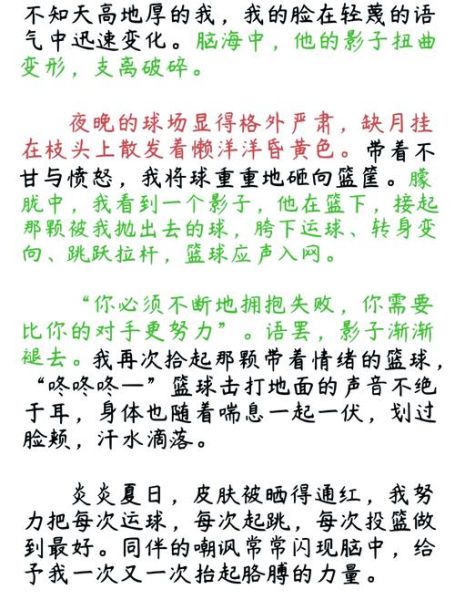 不知天高地厚的我，我的脸在轻蔑的语
气中迅速变化。脑海中，他的影子扭曲
变形，支离破碎。
夜晚的球场显得格外严肃，缺月挂
在枝头上散发着懒洋洋昏黄色。带着不
甘与愤怒，我将球重重地砸向篮筐。朦
胧中，我看到一个影子，他在篮下，接起
那颗被我抛出去的球，胯下运球、转身变
向、跳跃拉杆，篮球应声入网。
“你必须不断地拥抱失败，你需要
比你的对手更努力”。语罢，影子渐渐
褪去。我再次拾起那颗带着情绪的篮球，
“咚咚咚—”篮球击打地面的声音不绝
于耳，身体也随着喘息一起一伏，划过
脸颊，汗水滴落。
炎炎夏日，皮肤被晒得通红，我努
力把每次运球，每次起跳，每次投篮做
到最好。同伴的嘲讽常常闪现脑中，给
予我一次又一次抬起胳膊的力量。